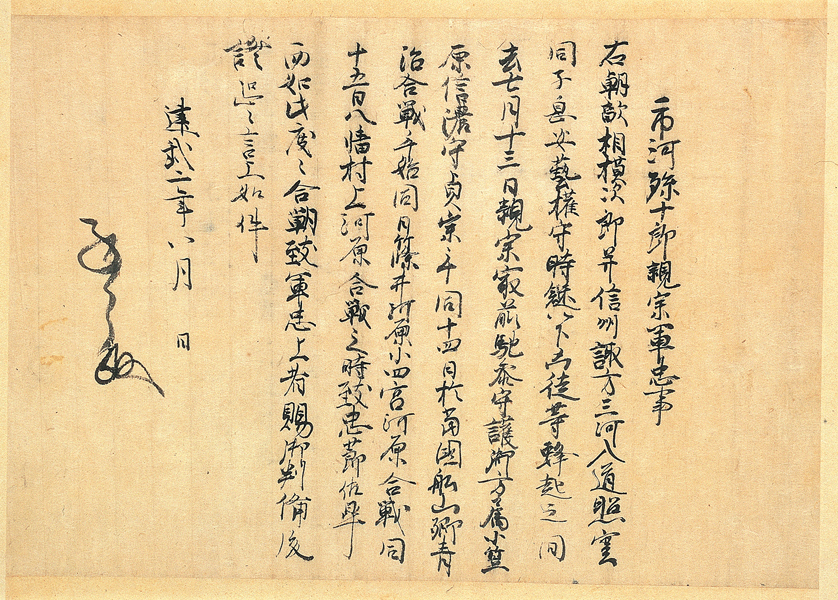 市河孫十郎親宗軍忠事
右朝敵相模次郎并信州諏方三河入道照雲
同子息安藝權守時継以下凶徒等蜂起之間
去七月十三日親宗最前馳参守護御方属小笠
原信濃守貞宗手同十四日於当国船山郷青
沼合戦手始同日篠井河原小四宮河原合戦同
十五日八幡村上河原合戦之時致忠節候畢
而如此度々合戦致軍忠上者賜御判備後
證恐々言上如件
建武二年八月 日